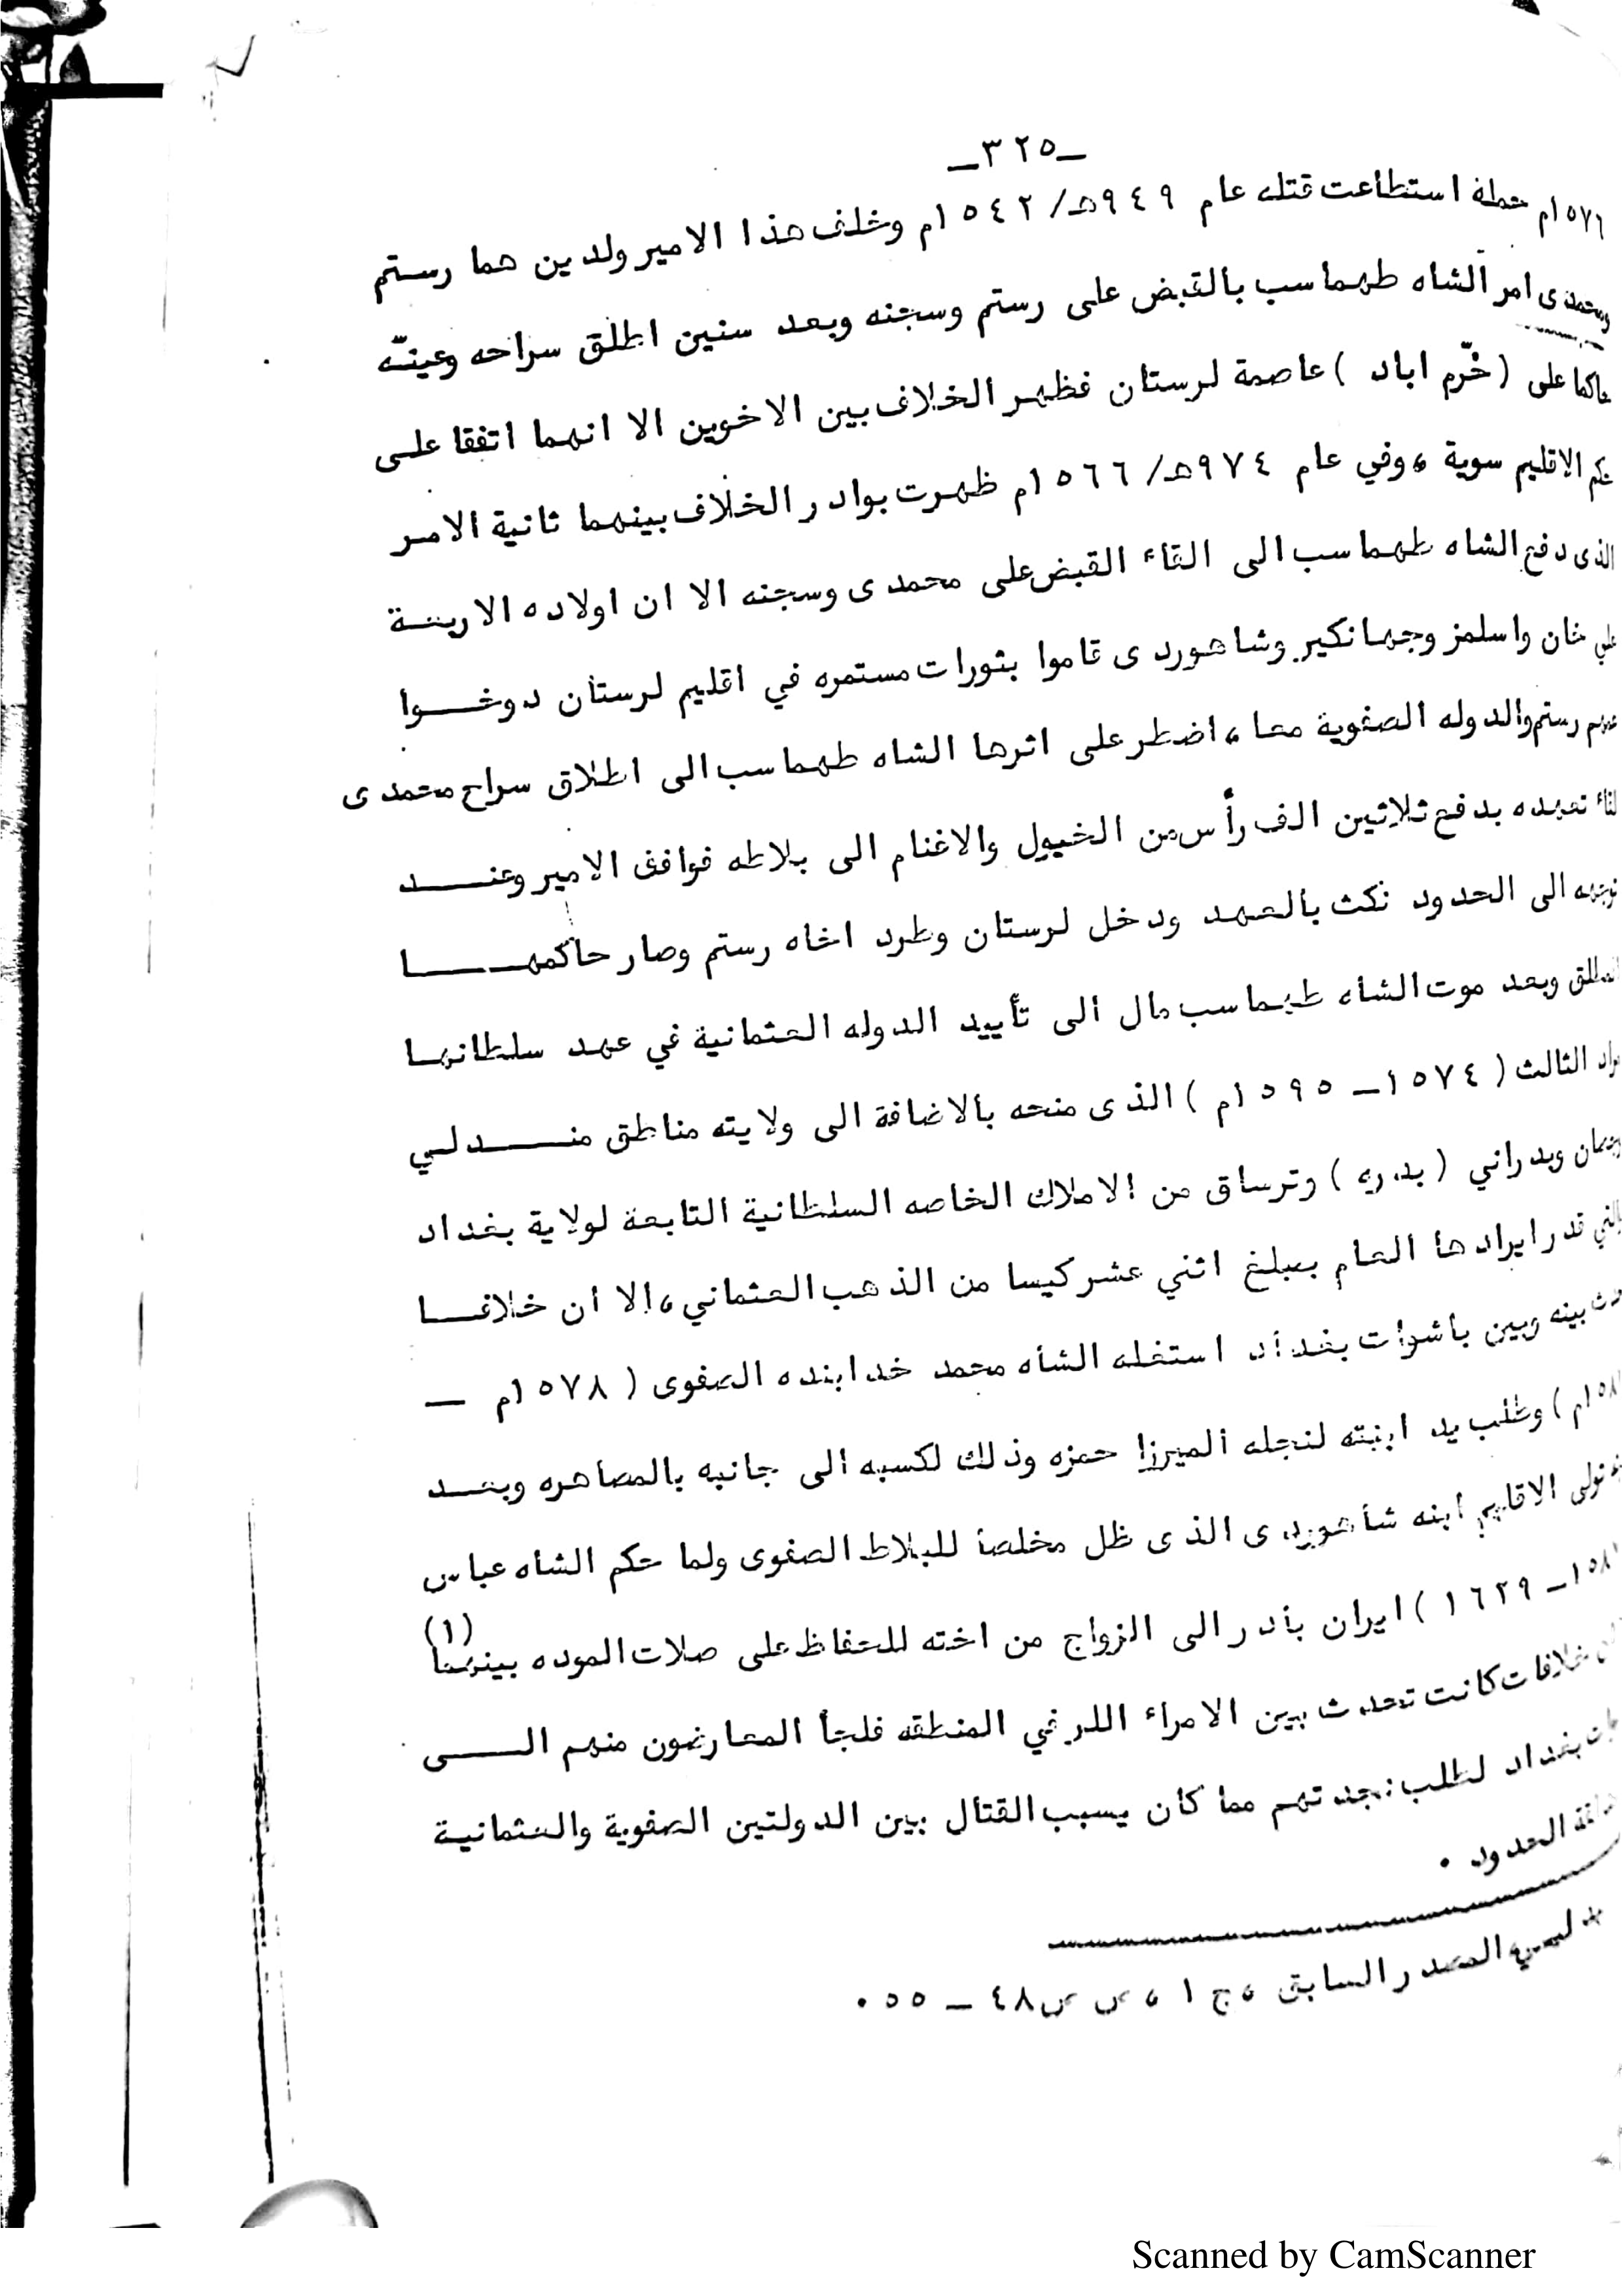 ـ٣٢٥ـ
١٥٧٦م حملة استطاعت قتله عام ٩٤٩هـ/١٥٤٢م وخلف هذا الامير ولدين هما رستم
ومحمدى امر الشاه طهماسب بالقبض على رستم وسجنه وبعد سنين اطلق سراحه وعينه
حاكما على (خرّم اباد) عاصمة لرستان فظهر الخلاف بين الاخوين الا انهما اتفقا على
حكم الاقليم سوية ، وفي عام ٩٧٤هـ/١٥٦٦م ظهرت بوادر الخلاف بينهما ثانية الامر
الذى دفع الشاه طهماسب الى القاء القبض على محمدى وسجنه الا ان اولاده الاربعة
علي خان واسلمز وجهانكير وشاهوردى قاموا بثورات مستمره في اقليم لرستان دوخوا
رستم والدوله الصفوية معا ، اضطر على اثرها الشاه طهماسب الى اطلاق سراح محمدى
لقاء تعهده بدفع ثلاثين الف رأس من الخيول والاغنام الى بلاطه فوافق الامير وعند
توجهه الى الحدود نكث بالعهد ودخل لرستان وطرد اخاه رستم وصار حاكمها
المطلق وبعد موت الشاه طهماسب مال الى تأييد الدوله العثمانية في عهد سلطانها
مراد الثالث (١٥٧٤ـ ١٥٩٥م) الذى منحه بالاضافة الى ولايته مناطق مندلي
وبدراني (بدره) وترساق من الاملاك الخاصه السلطانية التابعة لولاية بغداد
والتي قدر ايرادها العام بمبلغ اثني عشر كيسا من الذهب العثماني ، الا ان خلافا
حدث بينه وبين باشوات بغداد استغله الشاه محمد خدابنده الصفوى (١٥٧٨م ـ
وطلب يد ابنته لنجله الميرزا حمزه وذلك لكسبه الى جانبه بالمصاهره وبعد
تولى الاقليم ابنه شاهوردى الذى ظل مخلصا للبلاط الصفوى ولما حكم الشاه عباس
ـ ١٦٢٩) ايران بادر الى الزواج من اخته للحفاظ على صلات الموده بينهما (١)
خلافات كانت تحدث بين الامراء اللر في المنطقه فلجأ المعارضون منهم الى
بغداد لطلب نجدتهم مما كان يسبب القتال بين الدولتين الصفوية والعثمانية
الحدود .
المصدر السابق ، ج ١ ، ص ص ٤٨ ـ ٥٥ .
Scanned by CamScanner